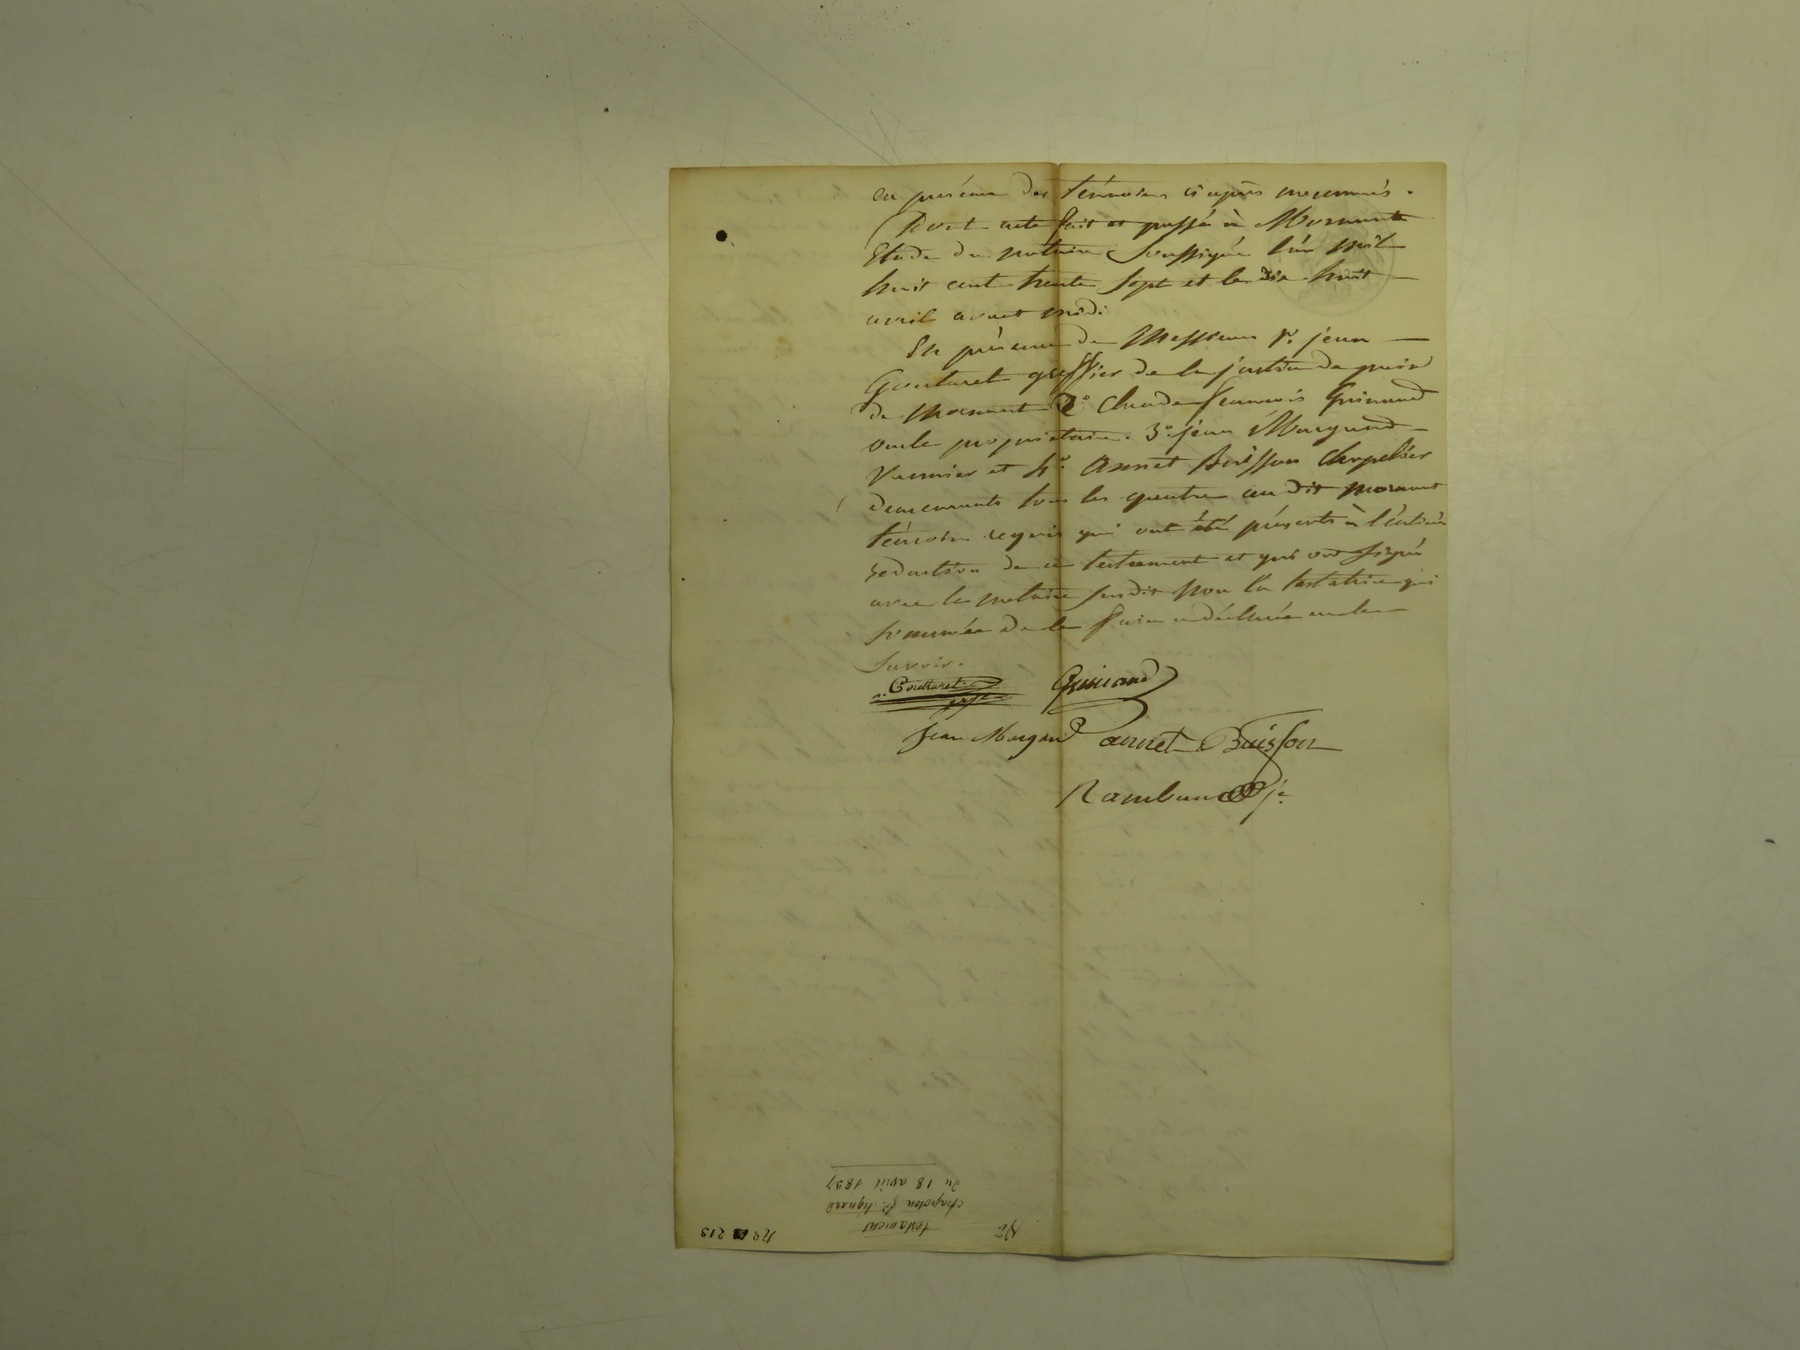 en présence des témoins ci après nommés.
Dont acte fait et passé à Mornant
Etude du notaire soussigné l'an mil
huit cent trente sept et le dix huit
avril avant midi
En présence de Messieurs 1º. jean
Goutaret greffier de la justice de paix
de Mornant 2º Claude françois Guinand
propriétaire. 3º. jean Margand
et 4º. Annet Buisson Chapelier
demeurants tous les quatre au dit Mornant
témoins requis qui ont été présents à l'entière
redaction de ce testament et qui ont signé
avec le notaire susdit non la testatrice qui
sommée de le faire a déclaré ne le
savoir.
Guinand
Jean Margand annet Buisson
je
Nº
testament
du 18 avril 1837
Nº 213